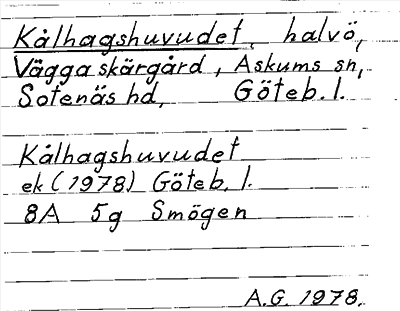 Kålhagshuvudet, halvö,
Vägga skärgård, Askums sn,
Sotenäs hd, Göteb. l.
Kålhagshuvudet
ek (1978) Göteb. l.
8A 5g Smögen
A.G. 1978.